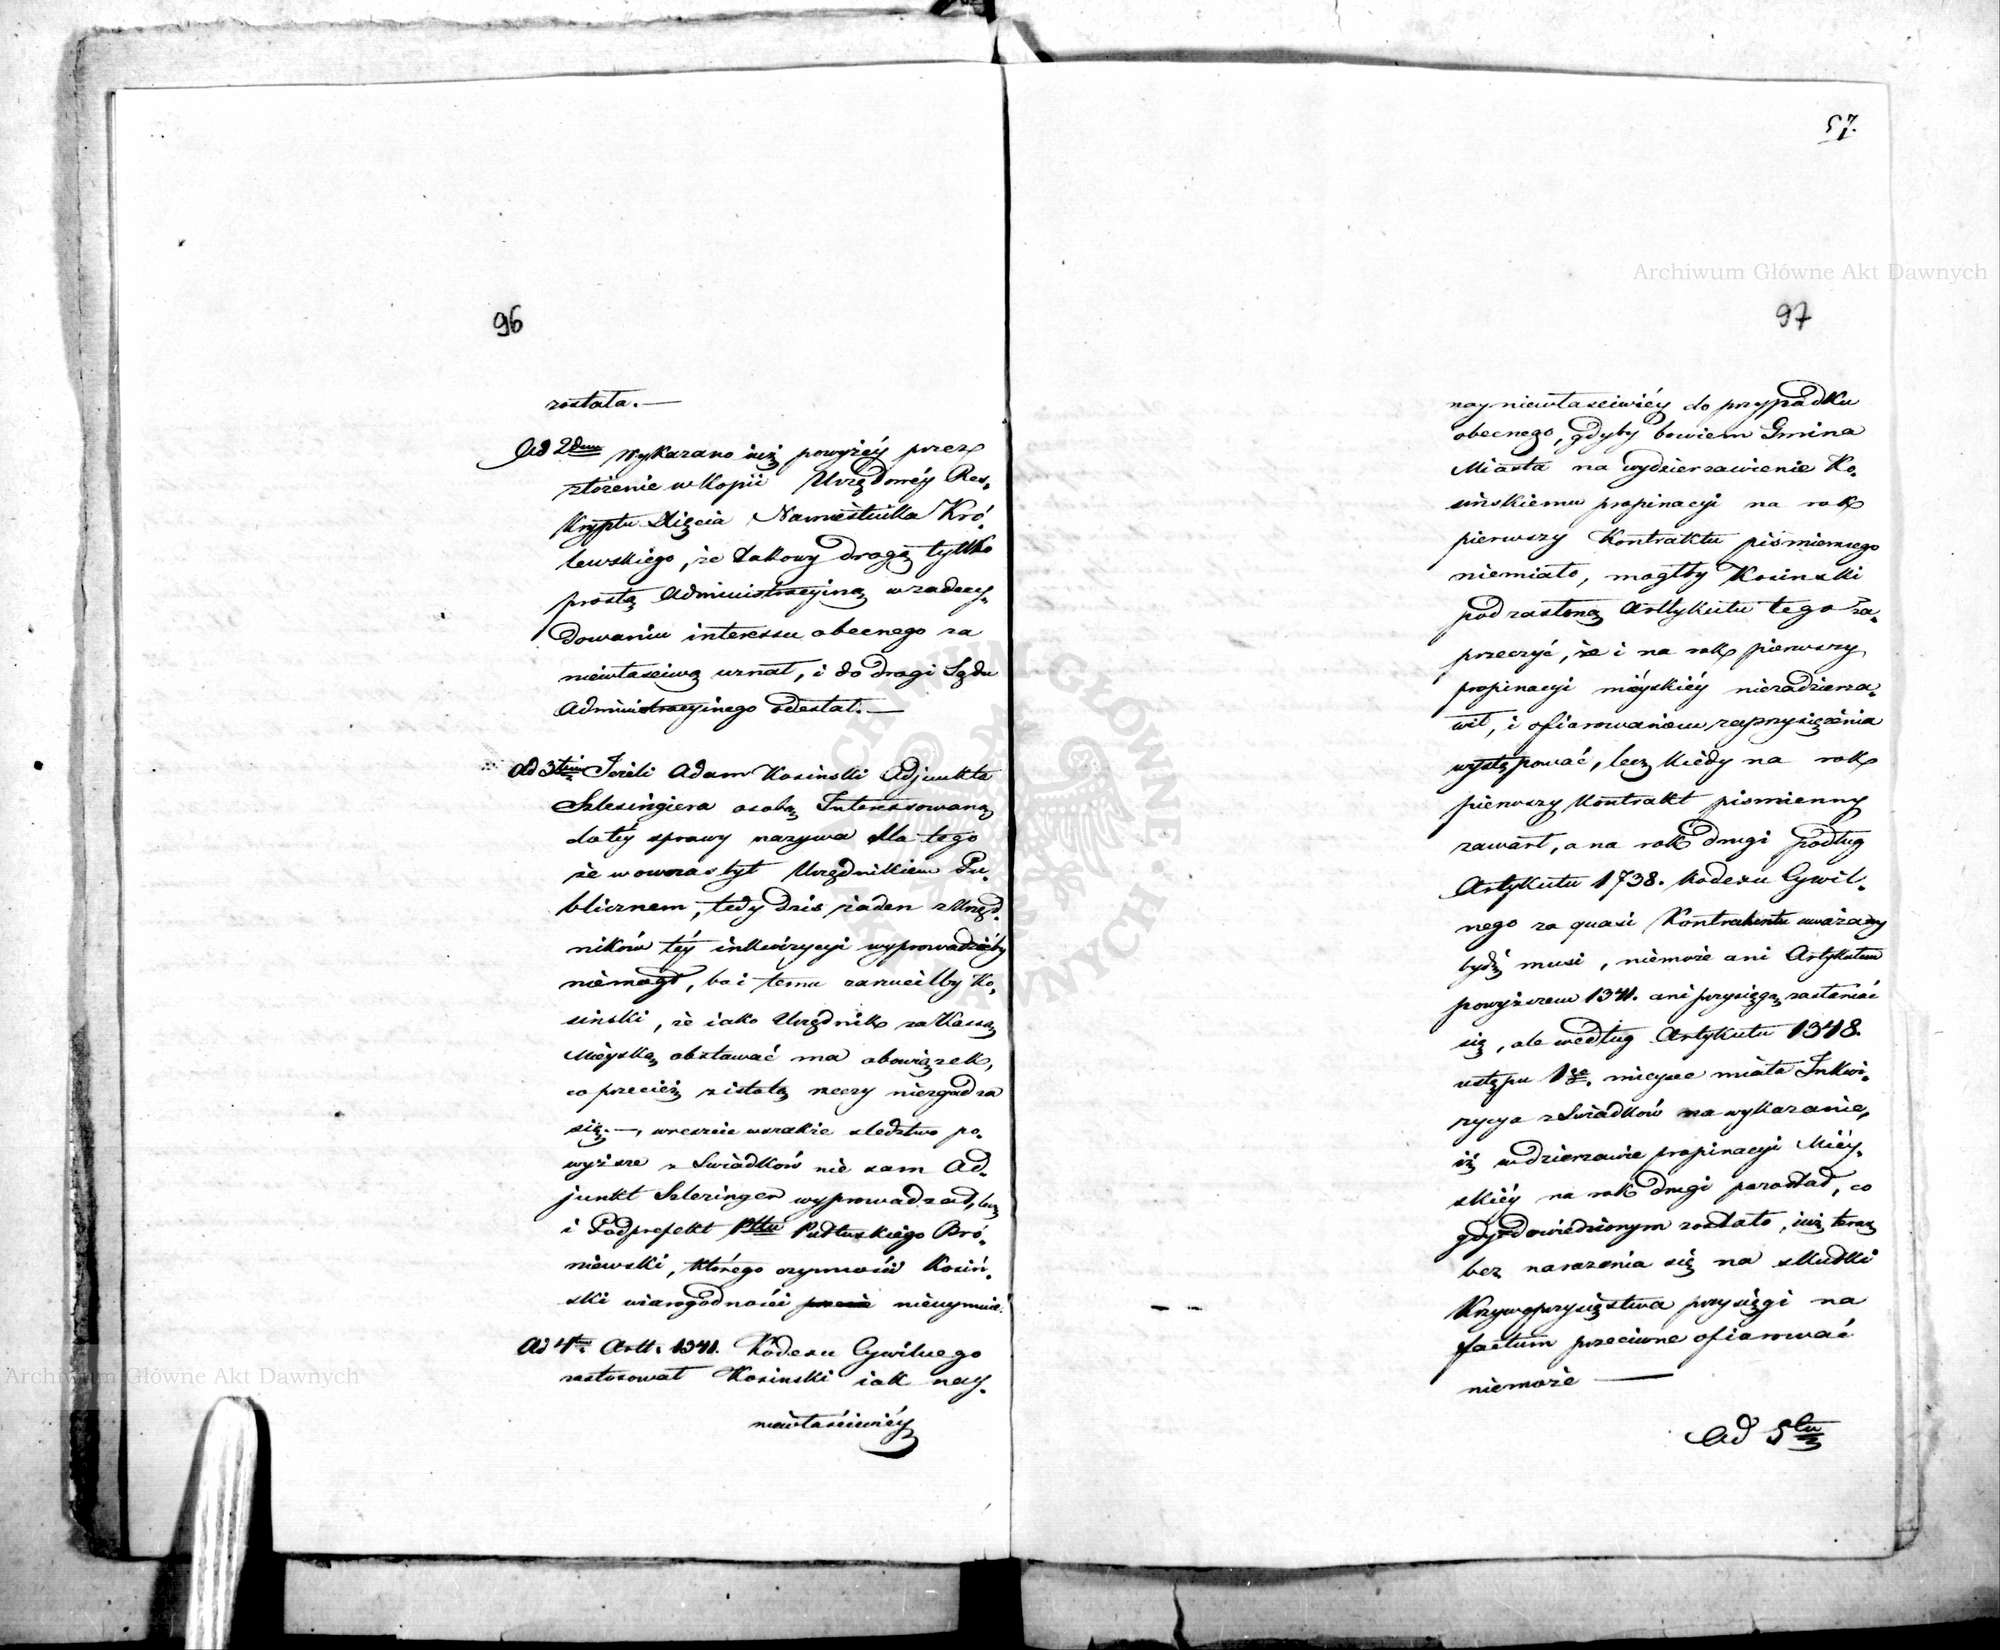 96
została. —
Ad 2dum Wykazano iuż powyżéy przez
złożenie w Kopii Urzędowéy Res-
kryptu Xięcia Namiestnika Kró-
lewskiego, że takowy drogą tylko
prostą Administracyiną w zadecy-
dowaniu interessu obecnego za
niewłaściwą uznał, i do drogi Sądu
Administracyinego odesłał. —
Ad 3tium Jeżeli Adam Kosinski Adjunkta
Szlesingiera osobą Interessowaną
do téy sprawy nazywa dla tego
że wowczas był Urzędnikiem Pu-
blicznem, tedy dzis żaden z Urzęd-
ników téy inkwizycyi wyprowadzićby
niemógł, bo i temu zarzuciłby Ko-
sinski, że iako Urzędnik za Kassą
Mieyską obstawać ma obowiązek,
co przecież z istotą rzeczy niezgadza
się. —, wreszcie wszakże sledztwo po-
wyższe z Swiadków nie sam Ad-
junkt Szlezinger wyprowadzał, lecz
i Podprefekt Pttu Pułtuskiego Bró-
niewski, którego czynności Kosiń-
ski wiarogodności nieuymuie.
Ad 4tum Artt. 1341. Kodexu Cywilnego
zastosował Kosinski iak nay-
niewłaściwiéy
57.
97
nayniewłasciwiéy do przypadku
obecnego, gdyby bowiem Gmina
Miasta na wydzierzawienie Ko-
sińskiemu propinacyi na rok
pierwszy Kontraktu pismiennego
niemiało, mogłby Kosinski
pod zasłoną Arttykułu tego za-
przeczyć, że i na rok pierwszy
propinacyi miéyskiéy niezadzierza-
wił, i ofiarowaniem zaprzysiężenia
występować, lecz kiedy na rok
pierwszy Kontrakt pismienny
zawarł, a na rok drugi podług
Artykułu 1738. Kodexu Cywil-
nego za quasi Kontrahentu uważany
bydź musi, niemoże ani Artykułem
powyższem 1341. ani przysięgą zasłaniać
się, ale według Artykułu 1348.
ustępu 1go. mieysce miała Inkwi-
zycya z Swiadków na wykazanie,
iż w dzierzawie propinacyi Miéy-
skiéy na rok drugi pozostał, co
gdy dowiedzionym zostało, iuż teraz
bez narażenia się na skutki
Krzywoprzysięstwa przysięgi na
factum przeciwne ofiarować
niemoże —
Ad 5tu
Archiwum Główne Akt Dawnych
Archiwum Główne Akt Dawnych
ARCHIWUM GŁÓWNE AKT DAWNYCH